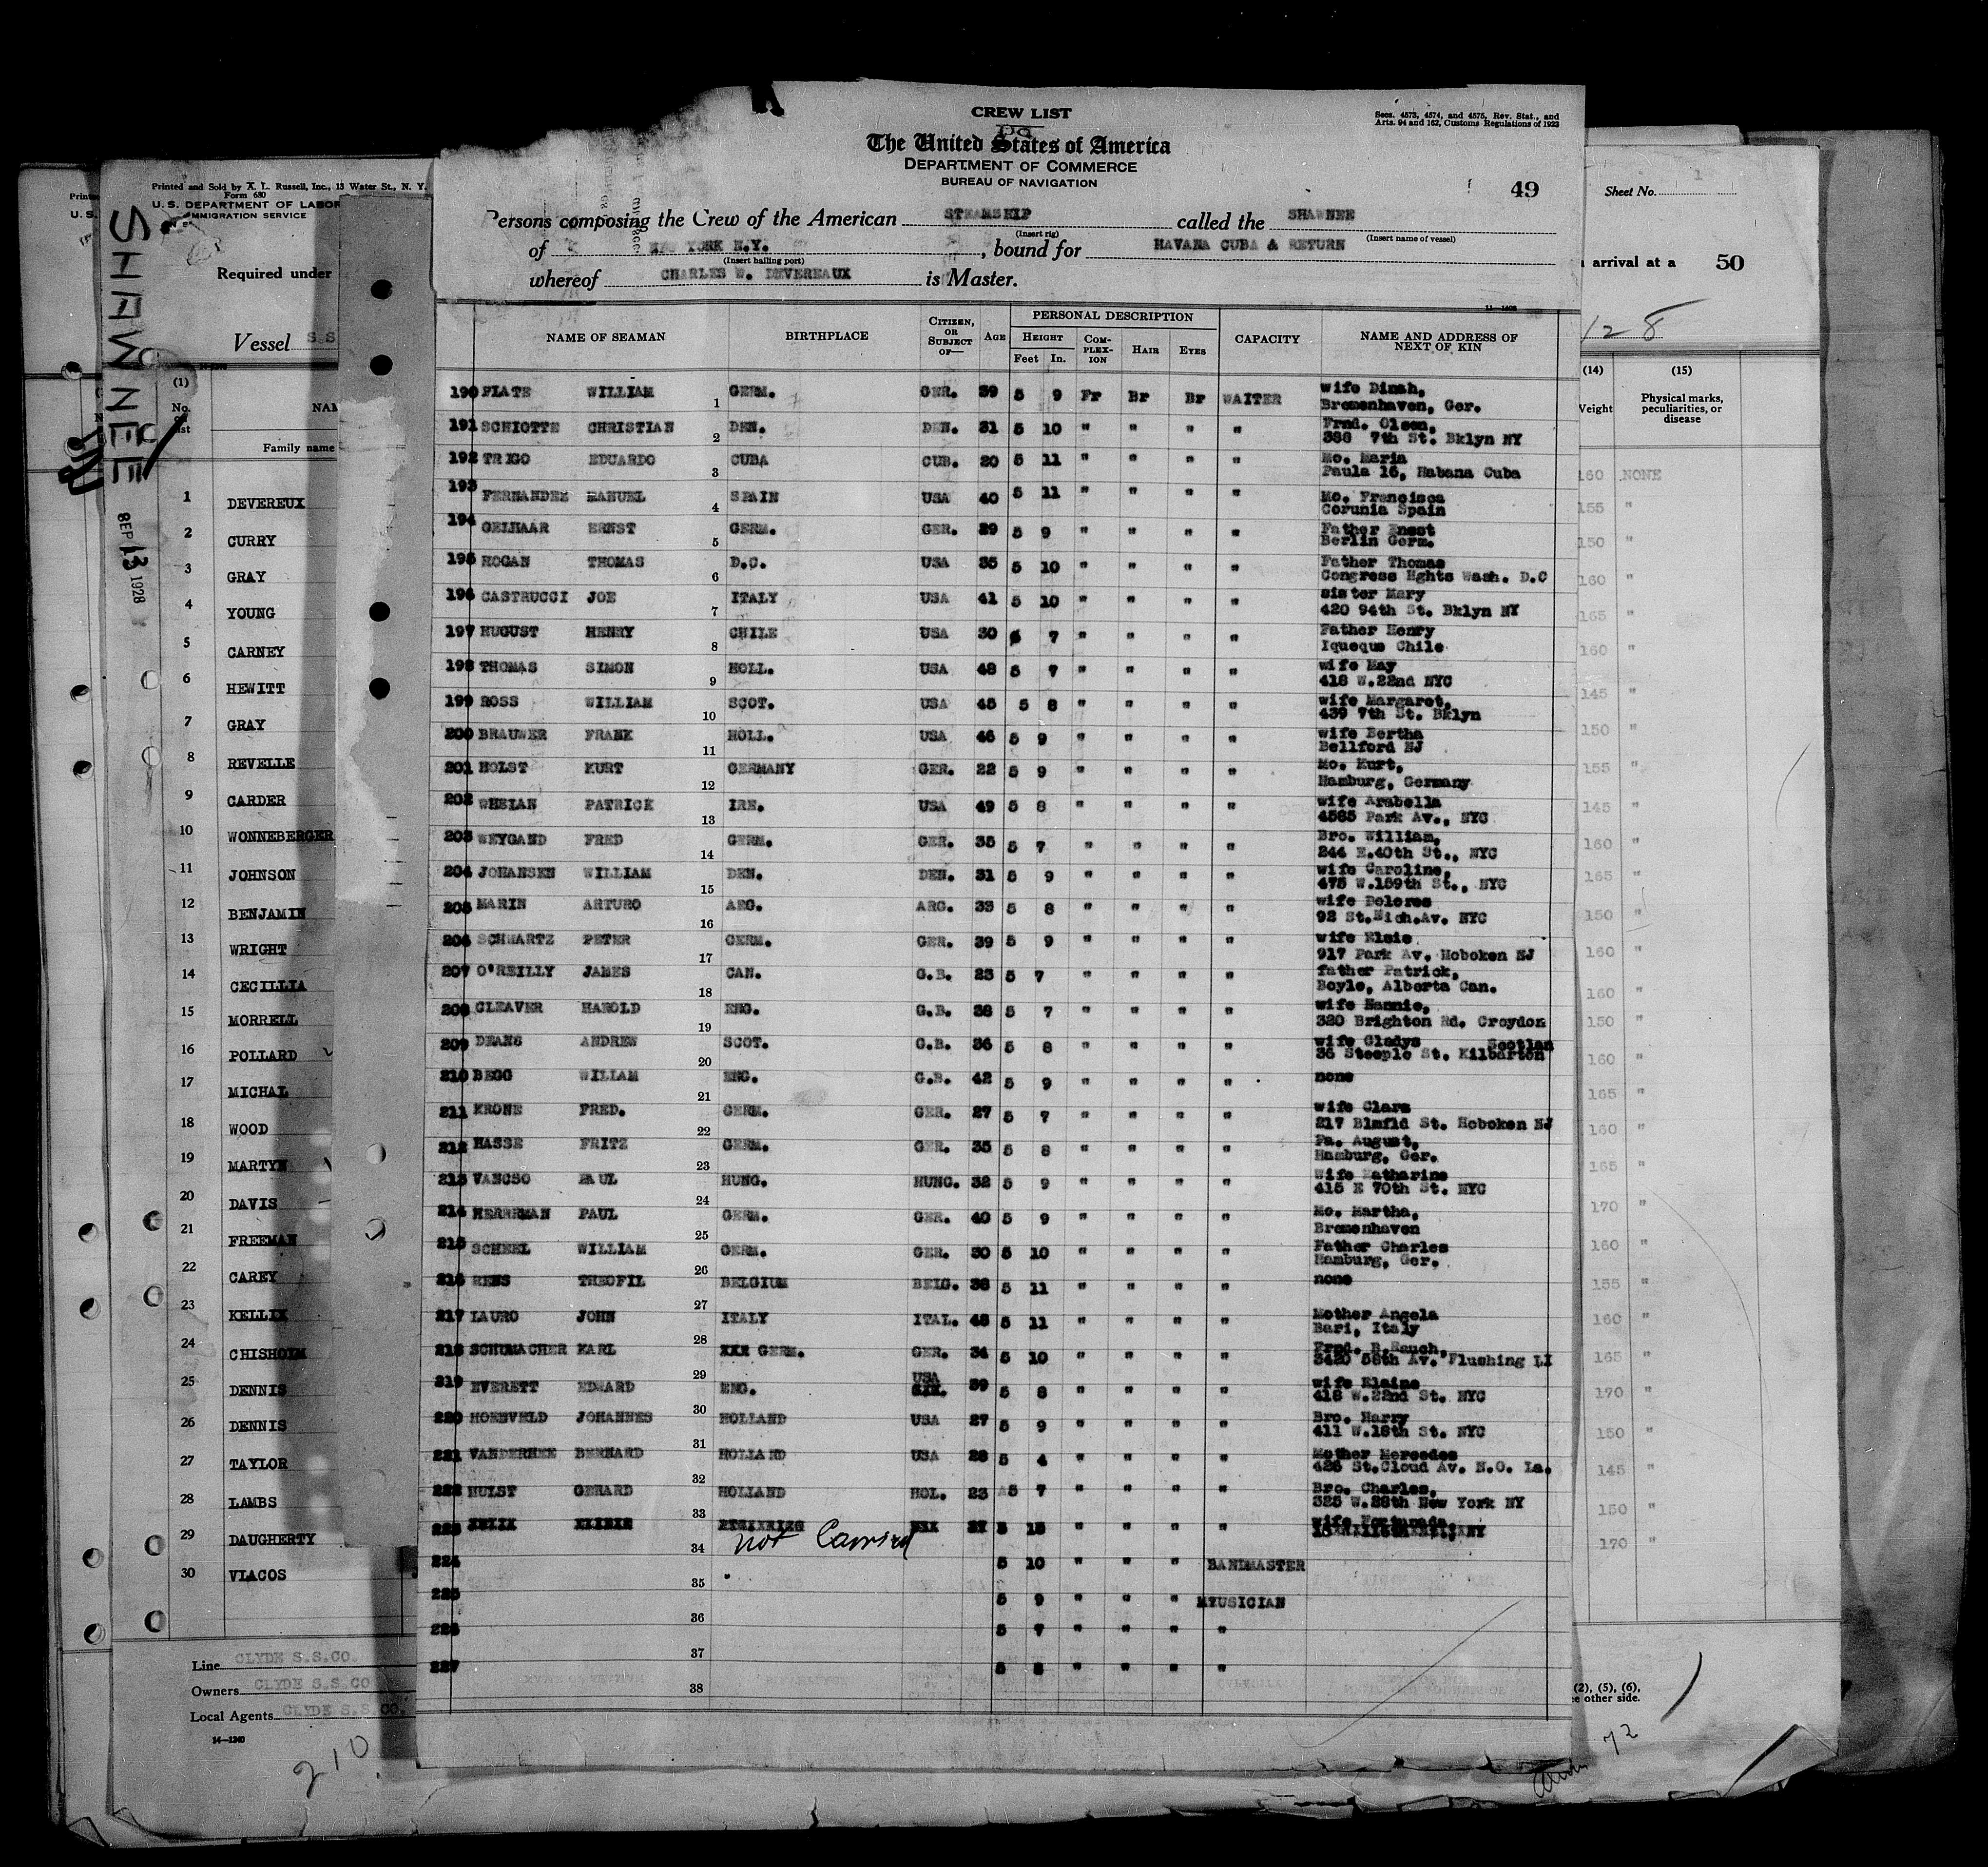 CREW LIST
Secs. 4573, 4574, and 4575, Rev. Stat., and
Arts. 94 and 162, Customs Regulations of 1923
The United States of America
DEPARTMENT OF COMMERCE
BUREAU OF NAVIGATION
49
Persons composing the Crew of the American STEAMSHIP called the SHAWNEE
(Insert rig) (Insert name of vessel)
of NEW YORK N.Y. , bound for HAVANA CUBA & RETURN
(Insert hailing port)
whereof CHARLES W. DEVEREAUX is Master.
NAME OF SEAMAN BIRTHPLACE CITIZEN, OR SUBJECT OF— AGE PERSONAL DESCRIPTION HEIGHT Feet In. COMPLEX-ION HAIR EYES CAPACITY NAME AND ADDRESS OF NEXT OF KIN
190 PLATE WILLIAM 1 GERM. GER. 39 5 9 Fr Br Br WAITER wife Dinah,
Bremenhaven, Ger.
191 SCHIOTTE CHRISTIAN 2 DEN. DEN. 31 5 10 " " " " Frnd. Olsen,
388 7th St. Bklyn NY
192 TRIGO EDUARDO 3 CUBA CUB. 20 5 11 " " " " Mo. Maria
Paula 16, Habana Cuba
193 FERNANDEZ MANUEL 4 SPAIN USA 40 5 11 " " " " Mo. Francisca
Corunia Spain
194 GELHAAR ERNST 5 GERM. GER. 29 5 9 " " " " Father Ernst
Berlin Germ.
195 HOGAN THOMAS 6 D.C. USA 35 5 10 " " " " Father Thomas
Congress Hghts Wash. D.C
196 CASTRUCCI JOE 7 ITALY USA 41 5 10 " " " " sister Mary
420 94th St. Bklyn NY
197 HUGUST HENRY 8 CHILE USA 30 7 " " " " Father Henry
Iqueque Chile
198 THOMAS SIMON 9 HOLL. USA 48 5 7 " " " " wife May
418 W.22nd NYC
199 ROSS WILLIAM 10 SCOT. USA 45 5 8 " " " " wife Margaret,
439 7th St. Bklyn
200 BRAUWER FRANK 11 HOLL. USA 46 5 9 " " " " wife Bertha
Bellford NJ
201 HOLST KURT 12 GERMANY GER. 22 5 9 " " " " Mo. Kurt,
Hamburg, Germany
202 WHELAN PATRICK 13 IRE. USA 49 5 8 " " " " wife Arabella
4585 Park Av., NYC
203 WEYGAND FRED 14 GERM. GER. 35 5 7 " " " " Bro. William,
244 E.40th St., NYC
204 JOHANSEN WILLIAM 15 DEN. DEN. 31 5 9 " " " " wife Caroline,
475 W.159th St., NYC
205 MARIN ARTURO 16 ARG. ARG. 33 5 8 " " " " wife Delores
92 St.Nich.Av. NYC
206 SCHWARTZ PETER 17 GERM. GER. 39 5 9 " " " " wife Elsie
917 Park Av. Hoboken NJ
207 O'REILLY JAMES 18 CAN. G.B. 23 5 7 " " " " father Patrick,
Boyle, Alberta Can.
208 CLEAVER HAROLD 19 ENG. G.B. 38 5 7 " " " " wife Nannie,
320 Brighton Rd. Croydon
209 DEANS ANDREW 20 SCOT. G.B. 36 5 8 " " " " wife Gladys Scotlan
36 Steeple St. Kilbarton
210 BEGG WILIAM 21 ENG. G.B. 42 5 9 " " " " none
211 KRONE FRED. 22 GERM. GER. 27 5 7 " " " " wife Clara
217 Blmfld St. Hoboken NJ
212 HASSE FRITZ 23 GERM. GER. 35 5 8 " " " " Pa. August,
Hamburg, Ger.
213 VANCSO PAUL 24 HUNG. HUNG. 32 5 9 " " " " Wife Katharine
415 E 70th St. NYC
214 HERRRMAN PAUL 25 GERM. GER. 40 5 9 " " " " Mo. Martha,
Bremenhaven
215 SCHEEL WILLIAM 26 GERM. GER. 30 5 10 " " " " Father Charles
Hamburg, Ger.
216 RENS THEOFIL 27 BELGIUM BELG. 38 5 11 " " " " none
217 LAURO JOHN 28 ITALY ITAL. 48 5 11 " " " " Mother Angela
Bari, Italy
218 SCHUMACHER KARL 29 XXX GERM. GER. 34 5 10 " " " " Frnd. B.Rauch,
3420 58th Av. Flushing LI
219 EVERETT EDWARD 30 ENG. USA 39 5 8 " " " " wife Elaine
418 W.22nd St. NYC
220 HOENVELD JOHANNES 31 HOLLAND USA 27 5 9 " " " " Bro. Harry
411 W.18th St. NYC
221 VANDERHEE BERNARD 32 HOLLAND USA 28 5 4 " " " " Mother Mercedes
426 St.Cloud Av. N.O. La.
222 HULST GERARD 33 HOLLAND HOL. 23 5 7 " " " " Bro. Charles,
325 W.28th New York NY
223 34 not Carried wife Fortunada,
224 35 5 10 " " " BANDMASTER
225 36 5 9 " " " MUSICIAN
226 37 5 7 " " " "
227 38 5 " " " "
Printed and Sold by A. L. Russell, Inc., 13 Water St., N. Y.
Form 680
U. S. DEPARTMENT OF LABOR
IMMIGRATION SERVICE
Required under
Vessel S S
SHAWNEE
SEP 13 1928
(1)
No. on list
Family name
1 DEVEREUX
2 CURRY
3 GRAY
4 YOUNG
5 CARNEY
6 HEWITT
7 GRAY
8 REVELLE
9 CARDER
10 WONNEBERGER
11 JOHNSON
12 BENJAMIN
13 WRIGHT
14 CECILLIA
15 MORRELL
16 POLLARD
17 MICHAL
18 WOOD
19 MARTYN
20 DAVIS
21 FREEMAN
22 CAREY
23 KELLIX
24 CHISHOLM
25 DENNIS
26 DENNIS
27 TAYLOR
28 LAMBS
29 DAUGHERTY
30 VLACOS
Line CLYDE S.S.CO.
Owners CLYDE S.S CO
Local Agents CLYDE S.S CO.
14—1240
210
Sheet No. 1
arrival at a 50
128
(14) (15)
Weight Physical marks, peculiarities, or disease
160 NONE
155 "
150 "
160 "
165 "
160 "
145 "
150 "
155 "
145 "
160 "
165 "
150 "
160 "
160 "
150 "
160 "
165 "
160 "
165 "
170 "
160 "
155 "
160 "
165 "
170 "
150 "
145 "
150 "
170 "
(2), (5), (6),
other side.
72